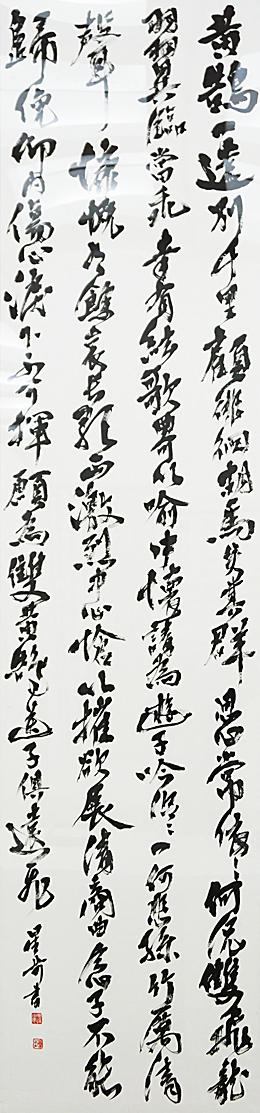 黃鵠一遠別千里顧徘徊胡馬失其群思心常依々何況雙飛龍
羽翼臨當乖幸有絃歌曲可以喻中懷請為遊子吟泠々一何悲絲竹厲清
聲慷慨有餘哀長歌正激烈中心愴以摧欲展清商曲念子不能
歸俛仰內傷心淚下不可揮願為雙黃鵠送子俱遠飛 書